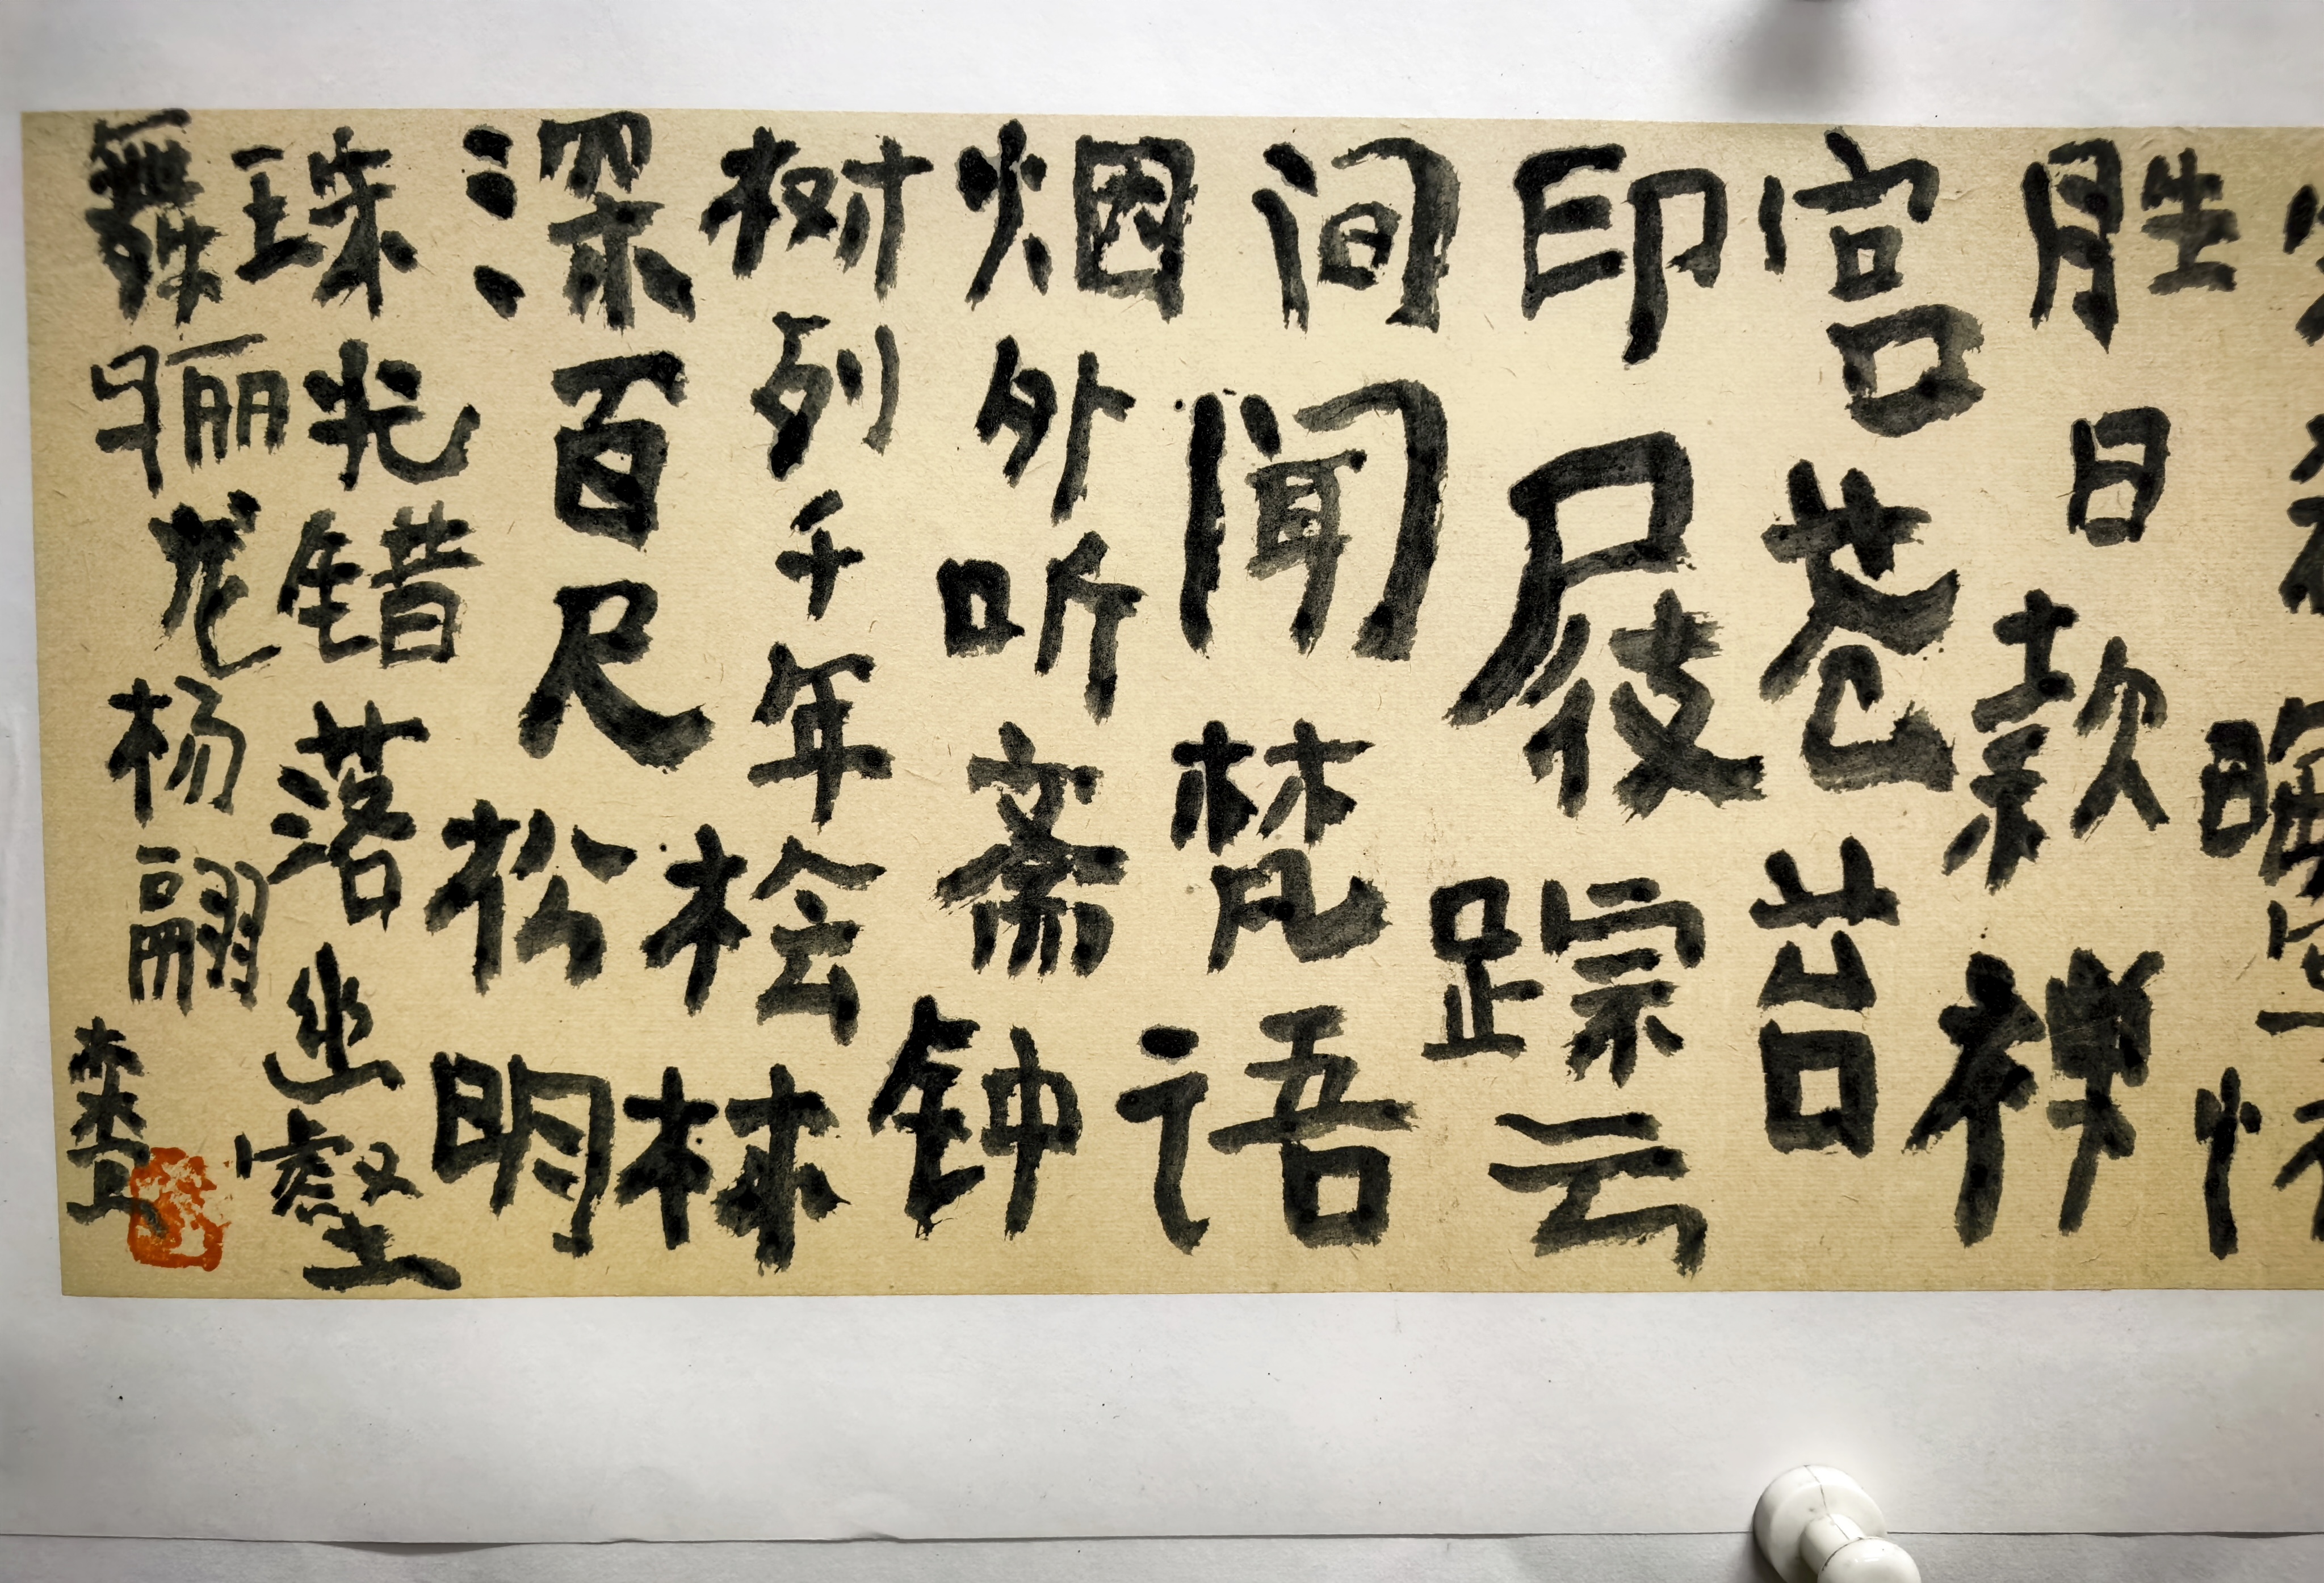 晦
胜日款禅
宫苍苔
印屐踪云
间闻梵语
烟外听斋钟
树列千年桧林
深百尺松明
珠光错落幽壑
舞骊龙杨翮